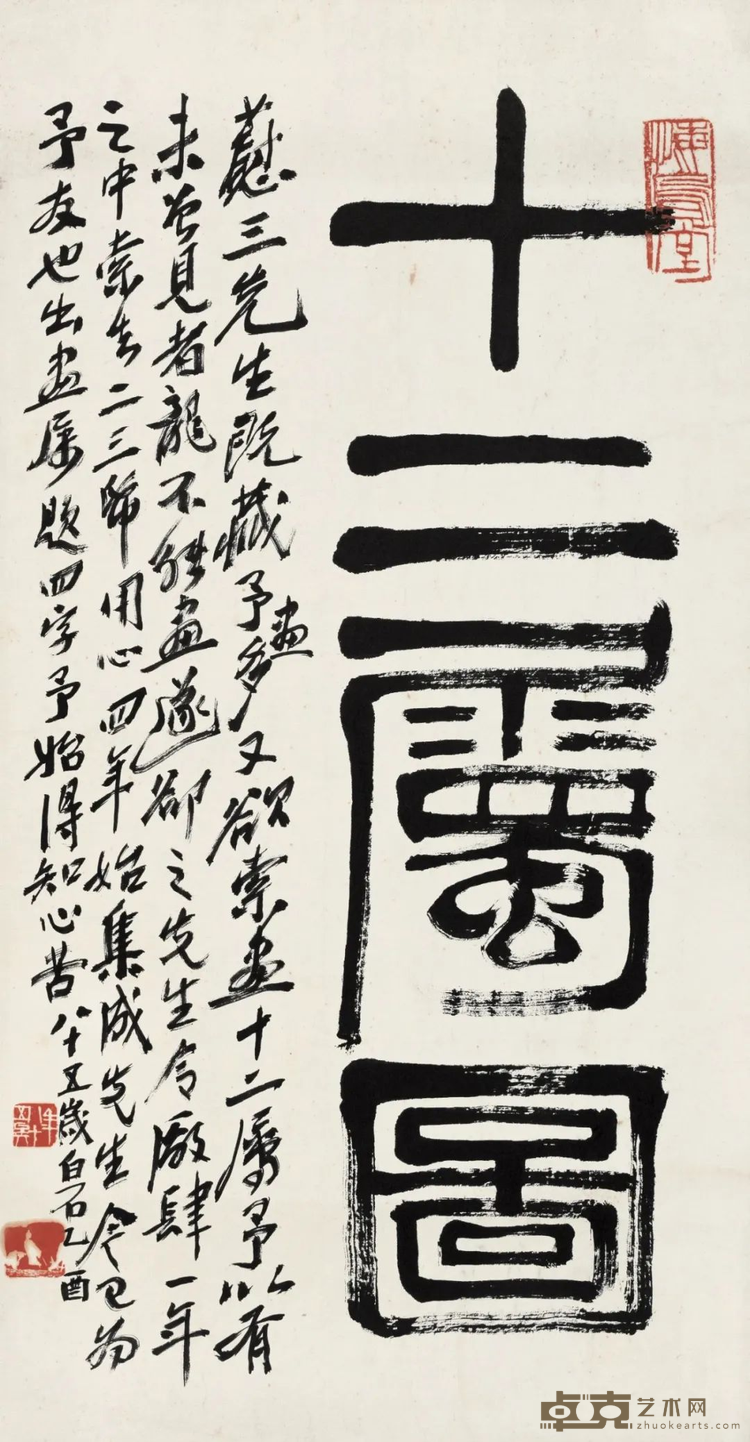 悔烏堂
十二屬圖
三先生既藏予畫多又欲索畫十二屬予以有
未曾見者龍不能畫遂卻之先生令廠肆一年
之中索去二三用心四年始集成先生今已為
予友也出畫属題四字予始得知心苦八十五歲白石乙酉
卓克艺术网
zhuokearts.com